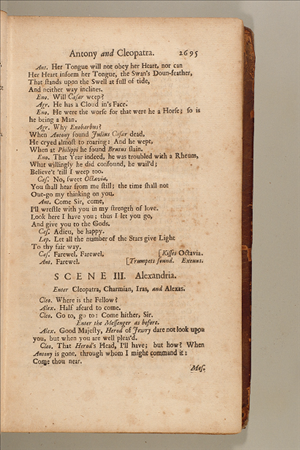 Antony and Cleopatra. 2695
Ant. Her Tongue will not obey her Heart, nor can
Her Heart inform her Tongue, the Swan's Down-feather,
That stands upon the Swell at full of tide,
And neither way inclines.
Eno. Will Cæsar weep?
Agr. He has a Cloud in's Face.
Eno. He were the worse for that were he a Horse; so is
he being a Man.
Agr. Why Enobarbus?
When Antony found Julius Cæsar dead,
He cryed almost to roaring: And he wept,
When at Philippi he found Brutus slain.
Eno. That Year indeed, he was troubled with a Rheum,
What willingly he did confound, he wail'd;
Believe't 'till I weep too.
Cæs. No, sweet Octavia,
You shall hear from me still; the time shall not
Out-go my thinking on you.
Ant. Come Sir, come,
I'll wrestle with you in my strength of love.
Look here I have you; thus I let you go,
And give you to the Gods.
Cæs. Adieu, be happy.
Lep. Let all the number of the Stars give Light
To thy fair way.
Cæs. Farewel, Farewel. [Kisses Octavia.
Ant. Farewel. [Trumpets sound. Exeunt.
SCENE III. Alexandria.
Enter Cleopatra, Charmian, Iras, and Alexas.
Cleo. Where is the Fellow?
Alex. Half afeard to come.
Cleo. Go to, go to: Come hither, Sir.
Enter the Messenger as before.
Alex. Good Majesty, Herod of Jewry dare not look upon
you, but when you are well pleas'd.
Cleo. That Herod's Head, I'll have; but how? When
Antony is gone, through whom I might command it:
Come thou near.
Mes.